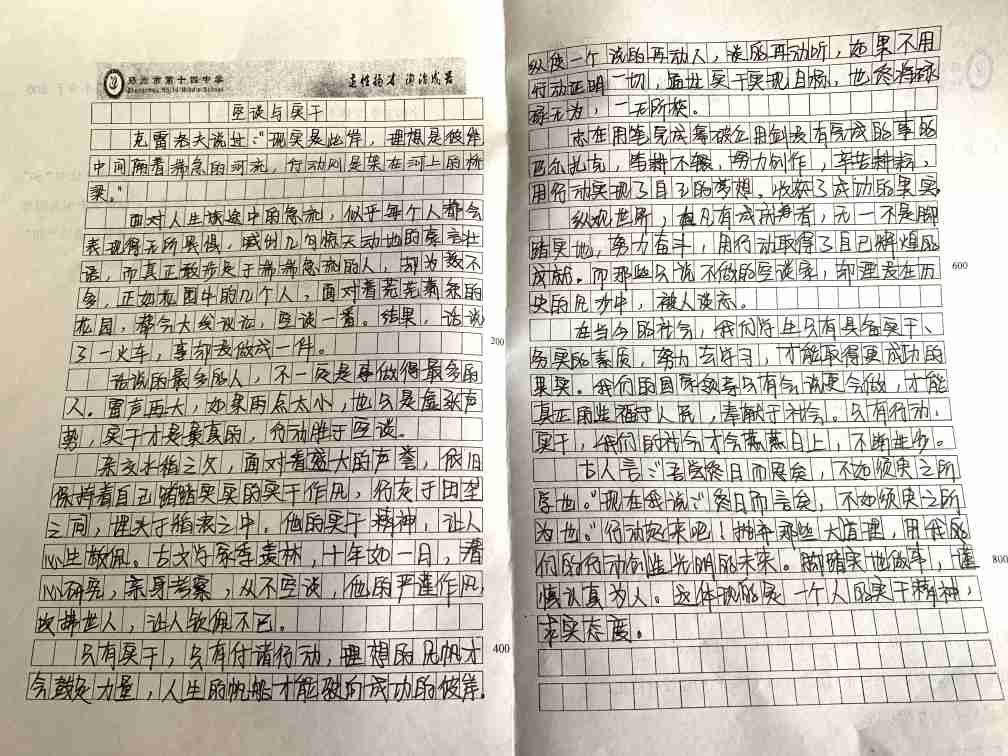 郑州市第十四中学
Zhengzhou No.14 Middle School
尽性扬才 陶冶成器
空谈与实干
克雷洛夫说过：“现实是此岸，理想是彼岸
中间隔着湍急的河流，行动则是架在河上的桥
梁。”
面对人生旅途中的急流，似乎每个人都会
表现得无所畏惧，喊出几句惊天动地的豪言壮
语，而真正敢涉足于湍湍急流的人，却为数不
多，正如花园中的几个人，面对着荒芜萧条的
花园，都会大谈议论，空谈一番。结果，话说
了一火车，事却没做成一件。
200
话说的最多的人，不一定是事做得最多的
人。雷声再大，如果雨点太小，也只是虚张声
势，实干才是最真的，行动胜于空谈。
杂交水稻之父，面对着盛大的声誉，依旧
保持着自己踏踏实实的实干作风，行走于田垄
之间，埋头于稻浪之中。他的实干精神，让人
心生敬佩。古文字家季羡林，十年如一日，潜
心研究，亲身考察，从不空谈，他的严谨作风，
让人钦佩不已。
只有实干，只有付诸行动，理想的风帆才
400
会鼓起力量，人生的帆船才能驶向成功的彼岸。
纵使一个说的再动人，谈的再动听，如果不用
行动证明一切，通过实干实现目标，也终将碌
碌无为，一无所获。
志在用笔完成拿破仑用剑没有完成的事的
巴尔扎克，笔耕不辍，努力创作，辛苦耕耘，
用行动实现了自己的梦想，收获了成功的果实。
纵观世界，但凡有成就者，无一不是脚
踏实地，努力奋斗，用行动取得了自己辉煌的
600
成就。而那些只说不做的空谈家，却湮没在历
史的风沙中，被人淡忘。
在当今的社会，我们学生只有具备实干、
务实的素质，努力去学习，才能取得更成功的
果实。我们的国家领导只有会说更会做，才能
真正用造福于人民，奉献于社会。只有行动、
实干，我们的社会才会蒸蒸日上，不断进步。
古人言：“吾尝终日而思矣，不如须臾之所
学也。”现在我说：“终日而言矣，不如须臾之所
为也。”行动起来吧！抛弃那些大道理，用我的
们的行动创造光明的未来。脚踏实地做事，谨
800
慎认真为人。这体现的是一个人的实干精神，
求实态度。